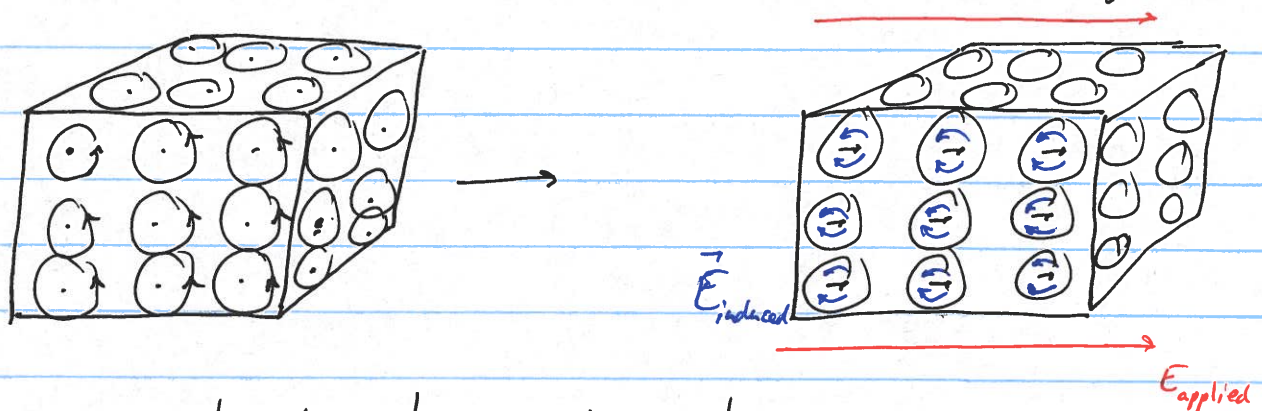 E induced
E applied